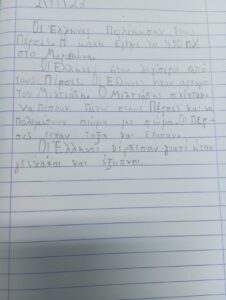 2/11/23
Οι Έλληνες πολέμησαν τους
Πέρσες. Η μάχη έγινε το 490 π.Χ
στο Μαραθώνα.
Οι Έλληνες ήταν λιγότεροι από
τους Πέρσες. Οι Έλληνες είχαν αρχηγό
τον Μιλτιάδη. Ο Μιλτιάδης σκέφτηκε
να πέσουν πάνω στους Πέρσες και να
πολεμήσουν σώμα με σώμα. Οι Πέρ-
σες είχαν τόξα και έχασαν.
Οι Έλληνες κέρδισαν γιατί ήταν
γενναίοι και έξυπνοι.